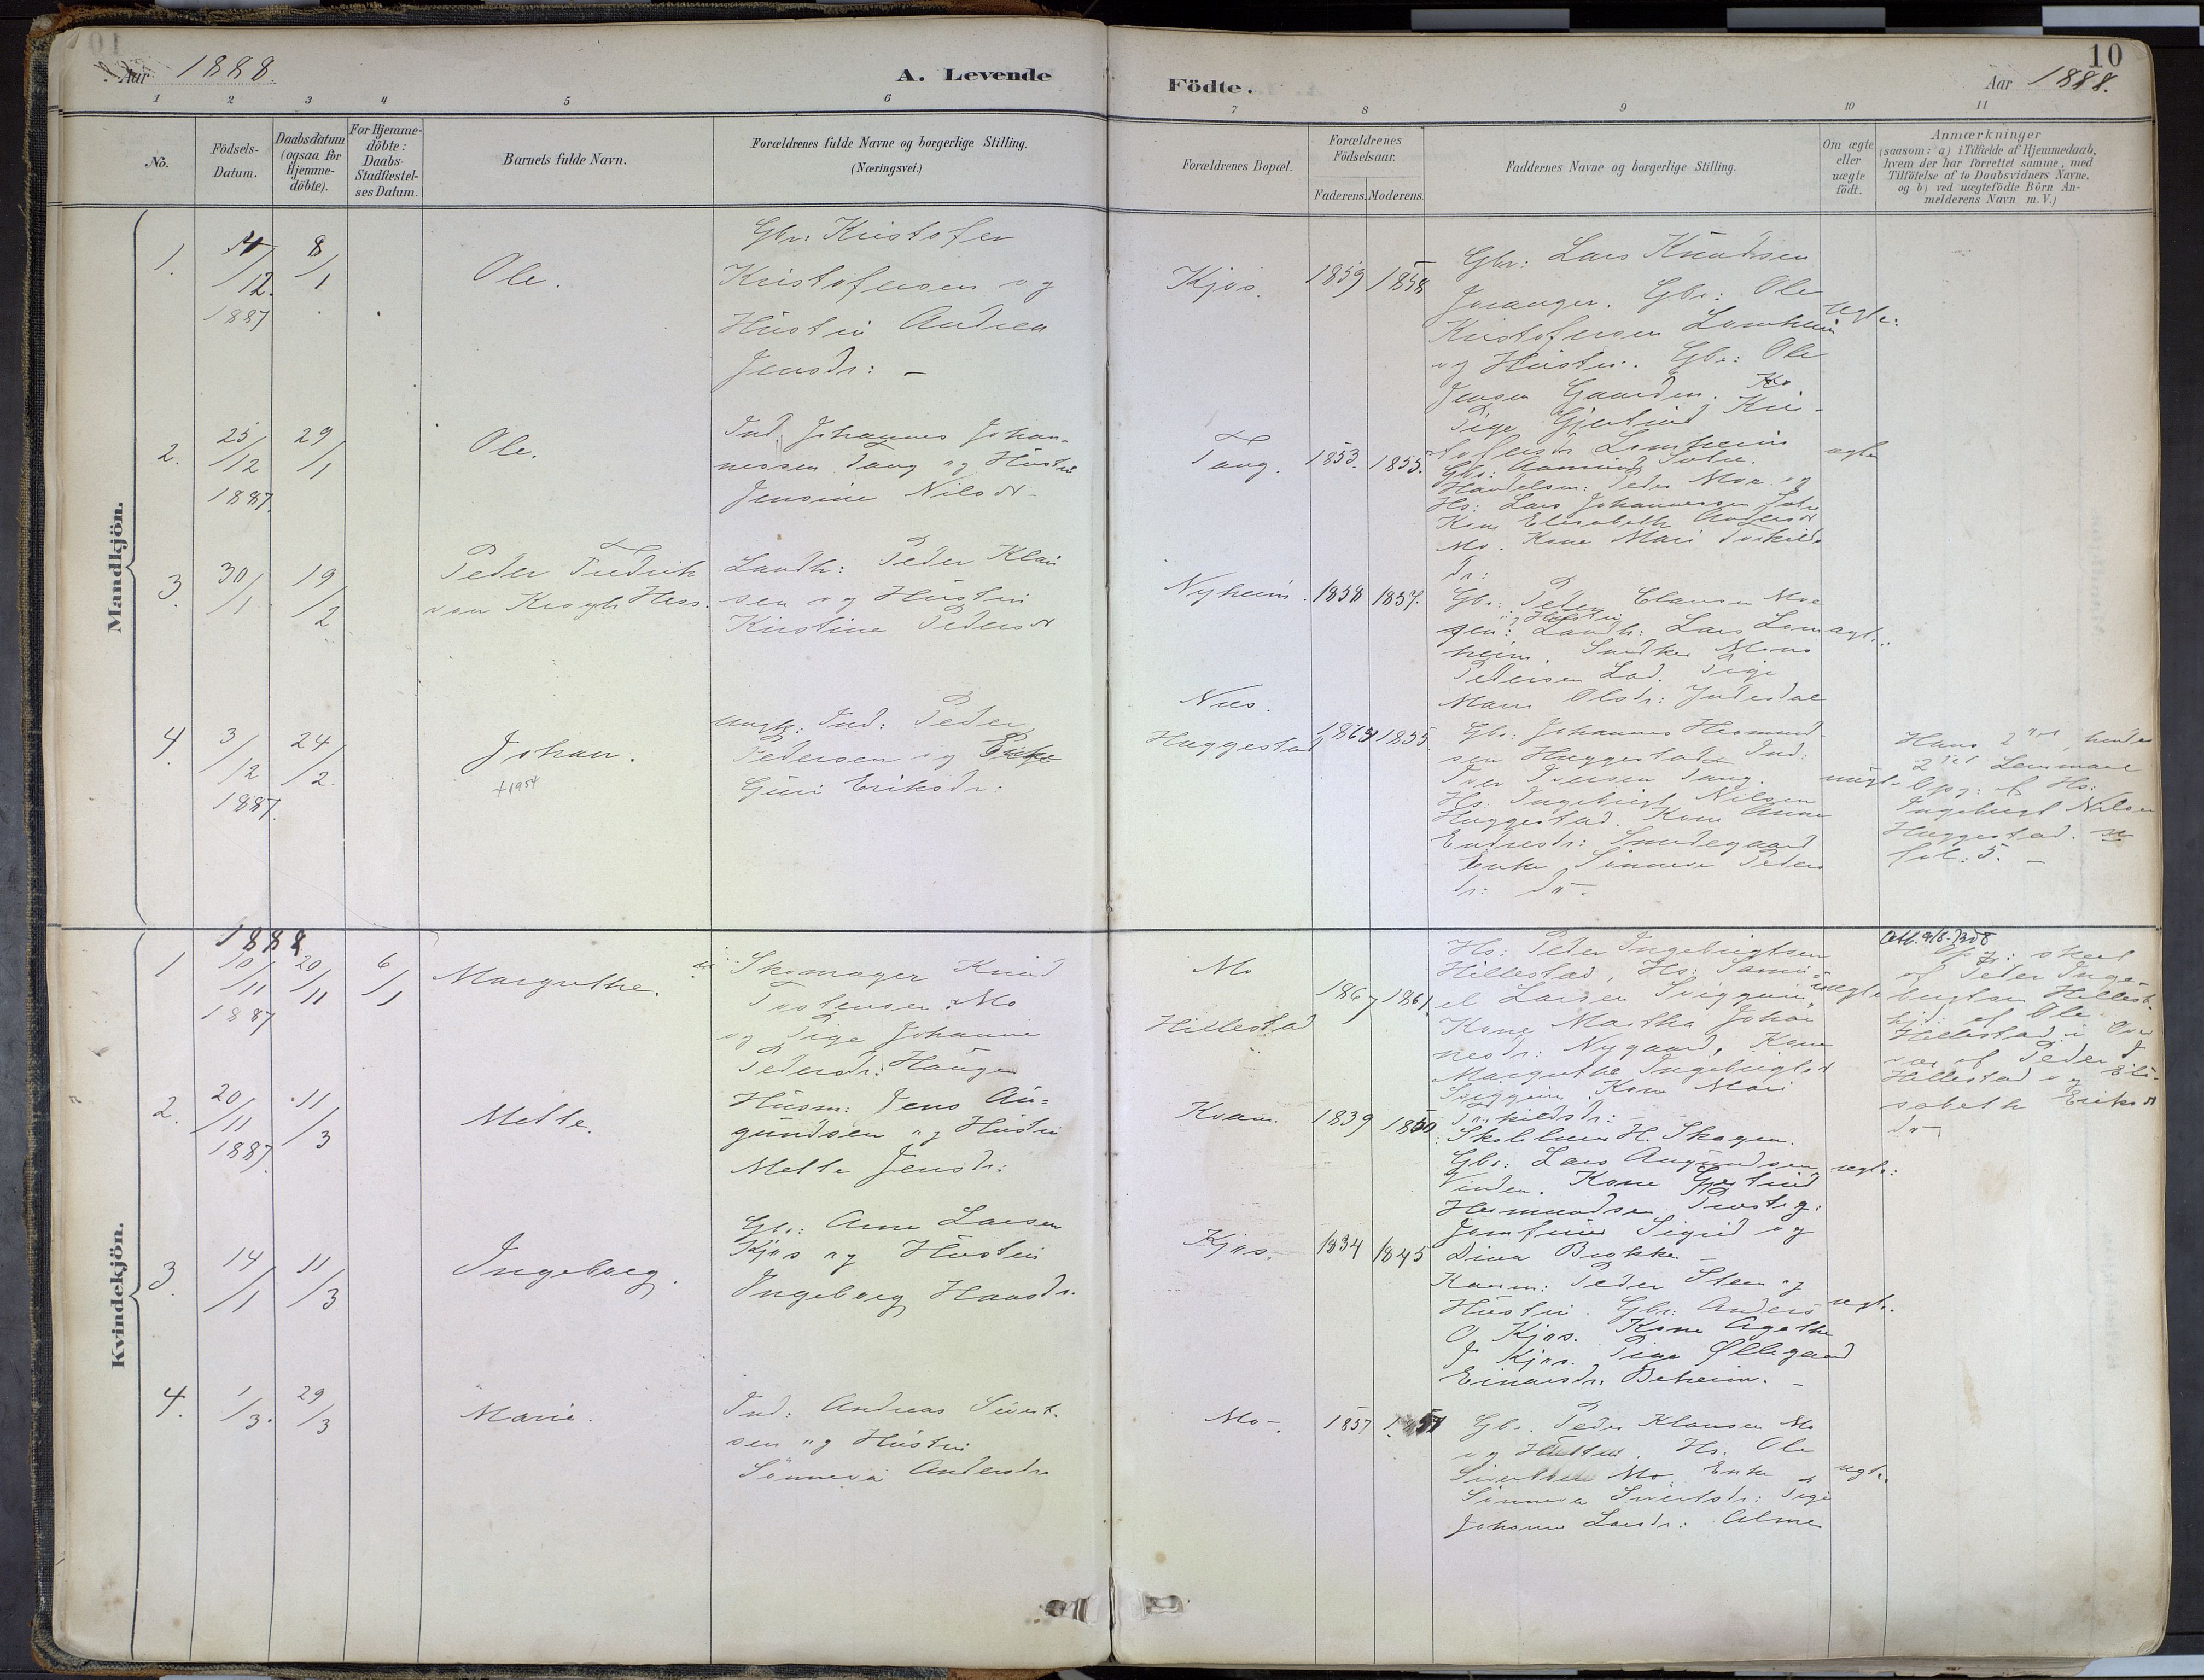 Aar 1888.
A. Levende
Födte.
Aar 1888.
10
1 2 3 4 5 6 7 8 9 10 11
No.
Födsels-
Datum.
Daabsdatum
(ogsaa for
Hjemme-
döbte).
For Hjemme-
döbte:
Daabs-
Stadfæstel-
ses Datum.
Barnets fulde Navn.
Forældrenes fulde Navne og borgerlige Stilling.
(Næringsvei.)
Forældrenes Bopæl.
Forældrenes
Födselsaar.
Faderens. Moderens.
Faddernes Navne og borgerlige Stilling.
Om ægte
eller
uægte
födt.
Anmærkninger
(saasom: a) i Tilfælde af Hjemmedaab,
hvem der har forrettet samme, med
Tilföielse af to Daabsvidners Navne,
og b) ved uægtefödte Börn An-
melderens Navn m. V.)
Mandkjön.
1.
/12.
1887
8/1
Ole.
Gbr: Kristofer
Kristofersen og
Hustru Andrea
Jensdr: –
Kjos.
1859
1858
Gbr: Lars Knudsen
Joranger. Gbr: Ole
Kristofersen Lomheim
og Hustru. Gbr: Ole
Jensen Gaarden.
Pige Gjertrud Kri-
stofersdr Lomheim
ægte:
2.
25/12
1887.
29/1
Ole.
Ind. Johannes Johan-
nessen Tang og Hustru
Jensine Nilsdr
Tang.
1853.
1855.
Gbr: Aamund
Handelsm: Peder Moe og
Hs: Lars Johannessen
Kone Elisabeth Andersdr
Mo. Kone Mari Torkilds
dr:
ægte
3.
30/1
19/2
Peder Fredrik
von Krogh Hess.
Landh: Peder Klau
sen og Hustru
Kristine Pedersdr
Nyheim.
1858
1857.
Gbr: Peder Clausen Moe
og Hustru
Landh: Lars Lom
heim. Snedker Mons
Pedersen Lad. Pige
Mari Olsdr:
ægte:
4.
3/12
1887.
24/2.
Johan.
+1954
Ungk. Ind: Peder
Pedersen og
Guri Eriksdr:
Næs.
Haggestad
1855
Gbr: Johannes Hermund
sen Haggestad. Ind:
Iver Iversen Tang.
Hs: Ingebrigt Nilsen
Haggestad. Kone Anne
Endresdr: Smedegaard
Enke Sönneva Peders
dr: do.
uægte
Hans 2det, hendes
2det Leiermaal
Opg: af Hs:
Ingebrigt Nilsen
Haggestad.
fol: 5. –
Kvindekjön.
1888
1
10/11
1887
20/11
6/1
Margrethe.
Skomager Knud
Torstensen Mo
og Pige Johanne
Pedersdr: Haugen
Mo
Hillestad
1867
1861.
Hs: Peder Ingebrigtsen
Hillestad, Hs: Samu-
el Larsen Svæggum,
Kone Martha Johan
nesdr: Nygaard, Kone
Margrethe Ingebrigtsdr
Svæggum. Kone Mari
Torkildsdr:
uægte
Opg: skeet
af Peder Inge-
brigtsen Hillest.
hjd: af Ole
Hillestad i Over
vær af Peder I
Hillestad og Eli-
sabeth Eriksdr
do
2.
20/11
1887.
11/3
Mette.
Husm: Jens Au-
gundsen og Hustru
Mette Jensdr:
Kvam.
1839
1850
Skolelærer H. Skagen.
Gbr: Lars Augundsen
Vinden. Kone Gjertrud
Hermundsen
Jomfruer Sigrid og
Dina Brokke –
ægte:
3.
14/1
11/3
Ingeborg.
Gbr: Arne Larsen
Kjos og Hustru
Ingeborg Hansdr.
Kjos.
1834
1845
Kaarm: Peder Steen og
Hustru. Gbr: Anders
O. Kjos. Kone Agathe
J. Kjos. Pige Øllegaard
Einarsdr. Beheim. –
ægte.
4.
1/3.
29/3
Marie.
Ind: Andreas Sivert-
sen og Hustru
Sönneva Andersdr
Mo –.
1857
Gbr. Peder Klausen Mo
og Hustru. Hs. Ole
Sivertsen Mo. Enke
Sönneva Sivertsdr: Pige
Johanne Larsdr: Alme
ægte.